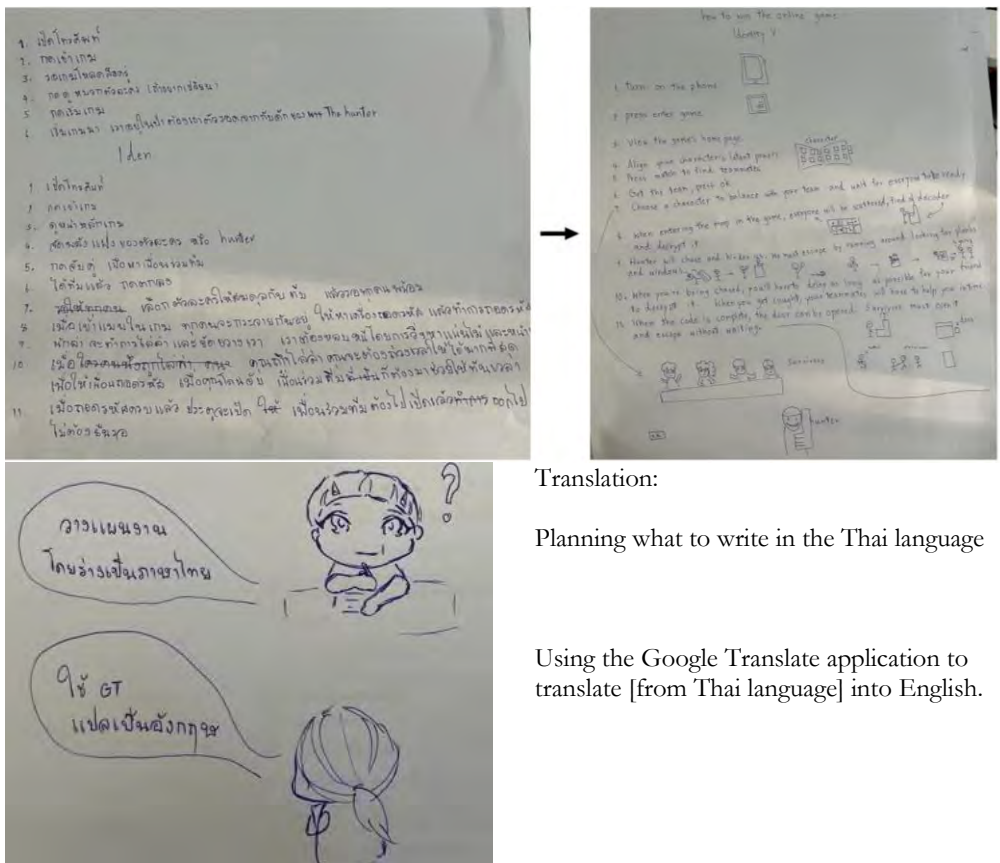 1. เปิดโทรศัพท์
2. กดเข้าเกม
3. รอเกมโหลดสักครู่
4. กดดูหมวดตัวละคร
5. กดเริ่มเกม
6. เริ่มเกมมา The hunter
Iden
1. เปิดโทรศัพท์
2. กดเข้าเกม
3. ดูหน้าหลักเกม
4. ของตัวละคร หรือ hunter
5. กดจับคู่ เพื่อหาเพื่อนร่วมทีม
6. ได้ทีมแล้ว กดตกลง
7. เลือกตัวละครให้สมดุลกับทีม แล้วรอทุกคนพร้อม
8. เมื่อเข้าแมพในเกม ทุกคนจะกระจายกันอยู่ ให้หาเครื่องถอดรหัส แล้วทำการถอดรหัส
9. นักล่า จะทำการไล่ล่า และขัดขวางเรา เราต้องหลบหนีโดยการวิ่งหาแผ่นไม้ และหน้าต่าง
10. เมื่อ คุณถูกไล่ล่า คุณจะต้องถ่วงเวลาให้ได้มากที่สุด
เพื่อให้เพื่อนถอดรหัส เมื่อคุณโดนจับ เพื่อนร่วมทีม ก็ต้องมาช่วยให้ทันเวลา
11. เมื่อถอดรหัสครบแล้ว ประตูจะเปิด เพื่อนร่วมทีมต้องไปเปิดแล้ว ออกไป
ไม่ต้องรอ
how to win the online game
Identity V
1. Turn on the phone
2. press enter game
3. View the game's home page
character
4. Align your character's latent panels
5. Press match to find teammates
6. Get the team, press ok
7. Choose a character to balance with your team and wait for everyone to be ready
8. When entering the map in the game, everyone will be scattered, find a decoder
and decrypt it
9. Hunter will chase and hinder us. We must escape by running around looking for planks
and windows
10. When you're being chased, you'll have to delay as long as possible for your friend
to decrypt it. When you get caught, your teammates will have to help you in time
11. When the code is complete, the door can be opened. Everyone must open it
and escape without waiting.
door
Survivors
hunter
วางแผนงาน
โดยร่างเป็นภาษาไทย
?
ใช้ GT
แปลเป็นอังกฤษ
Translation:
Planning what to write in the Thai language
Using the Google Translate application to
translate [from Thai language] into English.